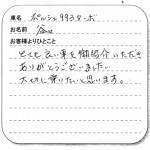 車名 ポルシェ993ターボ
お名前 谷
お客様よりひとこと
とても良い車を御紹介いただき
ありがとうございました
大切に乗りたいと思います。